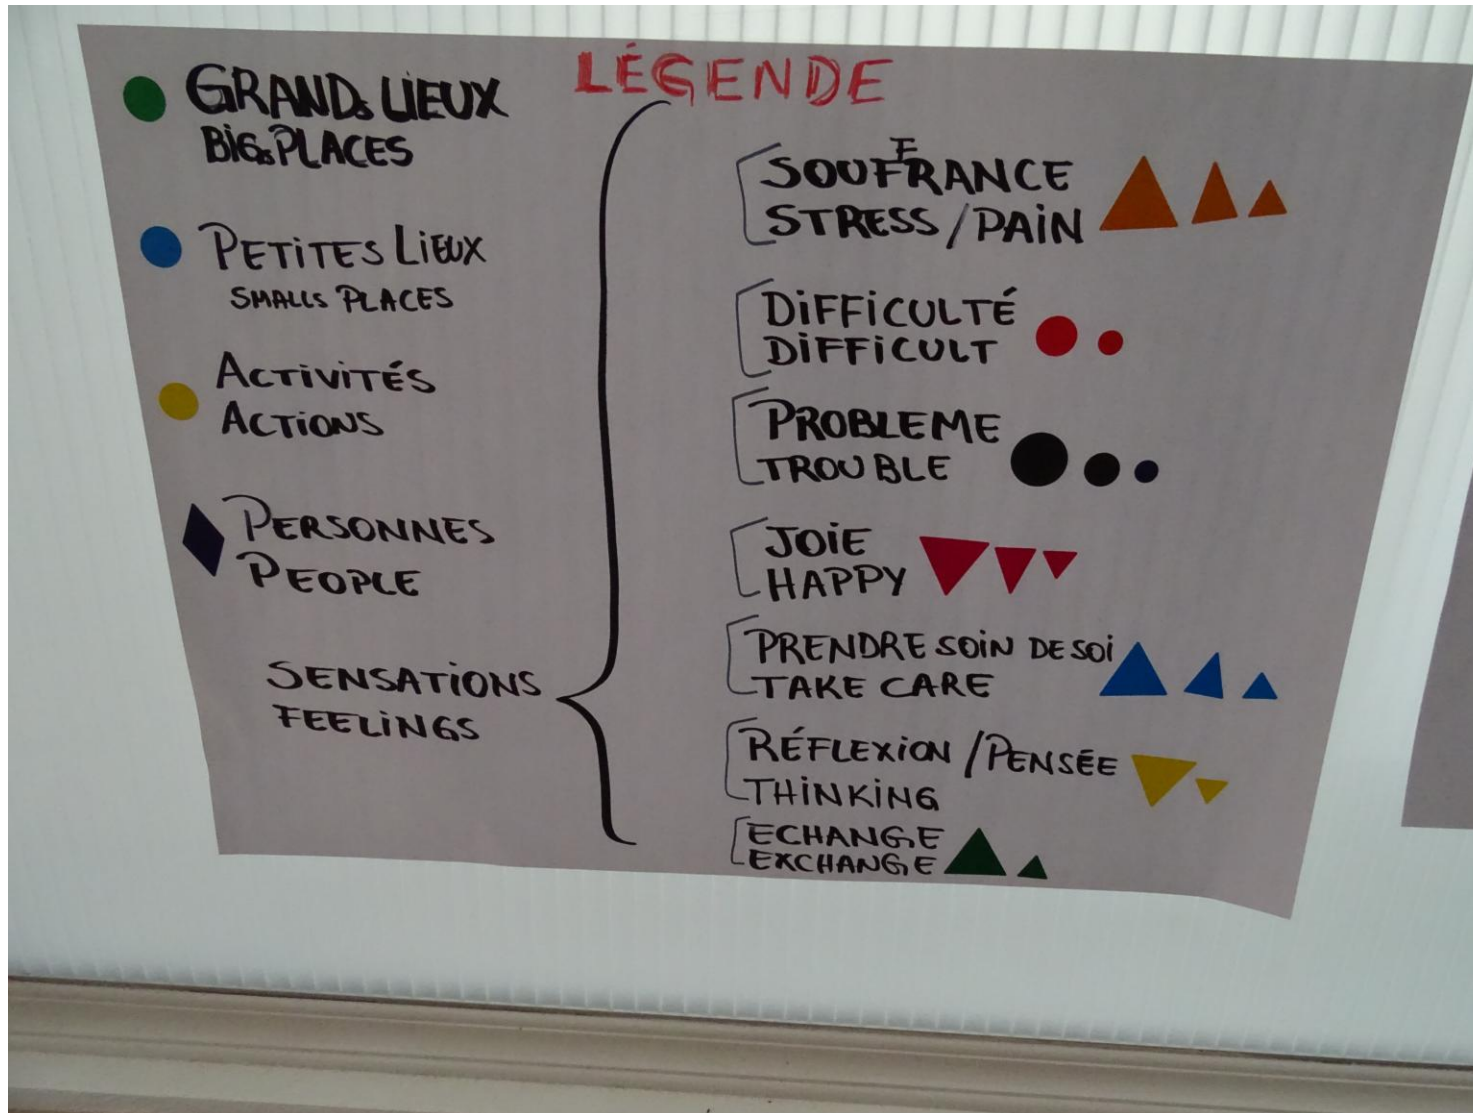 LÉGENDE
GRANDs LIEUX
BIGs PLACES
PETITES LIEUX
SMALLS PLACES
ACTIVITÉS
ACTIONS
PERSONNES
PEOPLE
SENSATIONS
FEELINGS
SOUFFRANCE
STRESS/PAIN
DIFFICULTÉ
DIFFICULT
PROBLEME
TROUBLE
JOIE
HAPPY
PRENDRE SOIN DE SOI
TAKE CARE
RÉFLEXION/PENSÉE
THINKING
ECHANGE
EXCHANGE